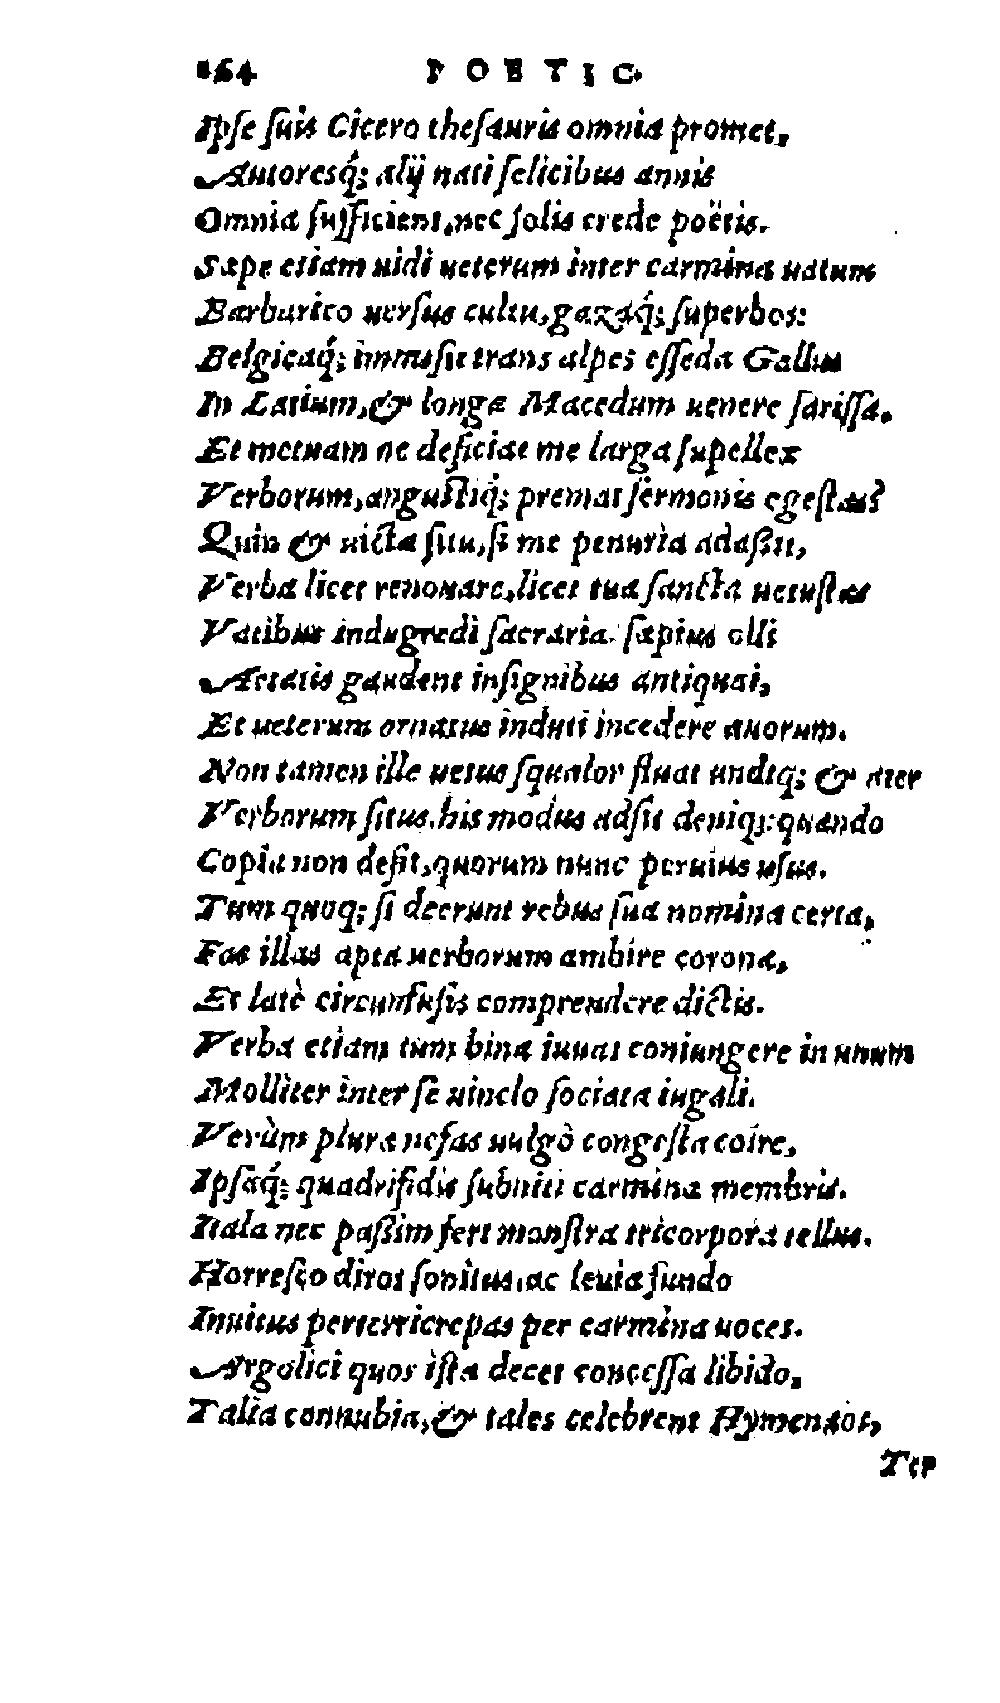 164 POETIC.
Ipſe ſuis Cicero theſauris omnia promet,
Autoresq́; alij nati felicibus annis
Omnia ſufficient, nec ſolis crede poëtis.
Sæpe etiam uidi ueterum inter carmina uatum
Barbarico uerſus cultu, gazaq́; ſuperbos:
Belgicaq́; immiſit trans alpes eſſeda Gallus
In Latium, & longæ Macedum uenere ſariſſæ.
Et metuam ne deficiat me larga ſupellex
Verborum, anguſtiq́; premat ſermonis egeſtas?
Quin & uicta ſitu, ſi me penuria adaſsit,
Verba licet renouare, licet tua ſancta uetuſtas
Vatibus indugredi ſacraria. ſæpius olli
Aetatis gaudent inſignibus antiquai,
Et ueterum ornatus induti incedere auorum.
Non tamen ille uetus ſqualor fluat undiq; & ater
Verborum ſitus. his modus adſit deniq;: quando
Copia non deſit, quorum nunc peruius uſus.
Tum quoq; ſi deerunt rebus ſua nomina certa,
Fas illas apta uerborum ambire corona,
Et latè circunfuſis comprendere dictis.
Verba etiam tum bina iuuat coniungere in unum
Molliter inter ſe uinclo ſociata iugali.
Verùm plura nefas uulgò congeſta coire,
Ipſaq́; quadrifidis ſubniti carmina membris.
Itala nec paſsim fert monſtra tricorpora tellus.
Horreſco diros ſonitus, ac leuia fundo
Inuitus perterricrepas per carmina uoces.
Argolici quos iſta decet conceſſa libido,
Talia connubia, & tales celebrent Hymenæos,
Ter